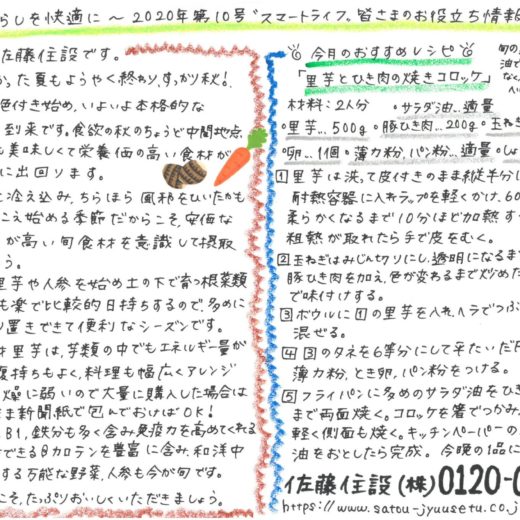 らしを快適に～2020年第10号〝スマートライフ〟皆さまのお役立ち情報
佐藤住設です。
かった夏もようやく終わり、すっかり秋!
色付き始め、いよいよ本格的な
到来です。食欲の秋のちょうど中間地点
も美味しくて栄養価の高い食材が
に出回ります。
と冷え込み、ちらほら風邪をひいたかも
こえ始める季節だからこそ、安価な
が高い旬食材を意識して摂取
う。
里芋や人参を始め土の下で育つ根菜類
も楽で比較的日持ちするので、多めに
り置きできて便利なシーズンです。
オ里芋は、芋類の中でもエネルギー量が
腹持ちもよく、料理も幅広くアレンジ
燥に弱いので大量に購入した場合は
ま新聞紙で包んでおけばOK!
B1、鉄分も多く含み免疫力を高めてくれる
できるβカロテンを豊富に含み、和洋中
する万能な野菜、人参も今が旬です。
こそ、たっぷりおいしくいただきましょう。
今月のおすすめレシピ
「里芋とひき肉の焼きコロッケ」
旬の
油で
なく
材料:2人分 •サラダ油…適量
•里芋…500g •豚ひき肉…200g •玉ね
•卵…1個 •薄力粉,パン粉…適量 •しょ
1 里芋は洗って皮付きのまま縦半分に
耐熱容器に入れラップを軽くかけ、60
柔らかくなるまで10分ほど加熱す
粗熱が取れたら手で皮をむく。
2 玉ねぎはみじん切りにし、透明になるま
豚ひき肉を加え、色が変わるまで炒めた
で味付けする。
3 ボウルに1の里芋を入れ、ヘラでつぶ
混ぜる。
4 3のタネを6等分にして平たい だ円
薄力粉,とき卵,パン粉をつける。
5 フライパンに多めのサラダ油をひき
まで両面焼く。コロッケを箸でつかみ
軽く側面も焼く。キッチンペーパーの
油をおとしたら完成。今晩の1品に
佐藤住設(株)0120-0
https://www.satou-jyuusetu.co.j